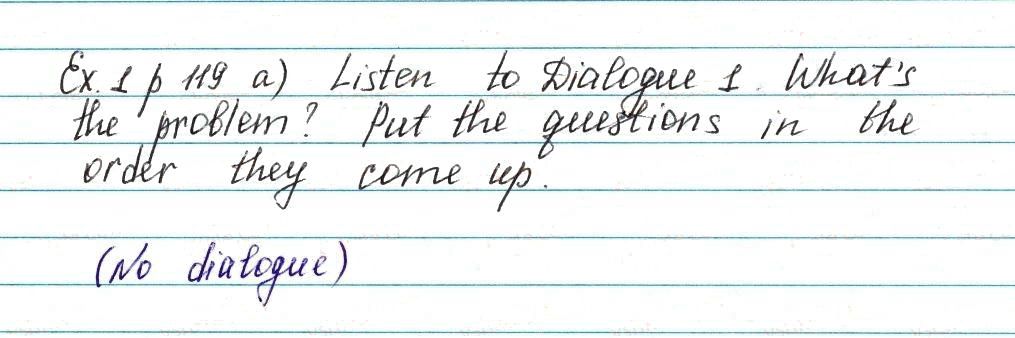 Ex. 1 p 119 a) Listen to Dialogue 1. What's
the problem? Put the questions in the
order they come up.
(No dialogue)